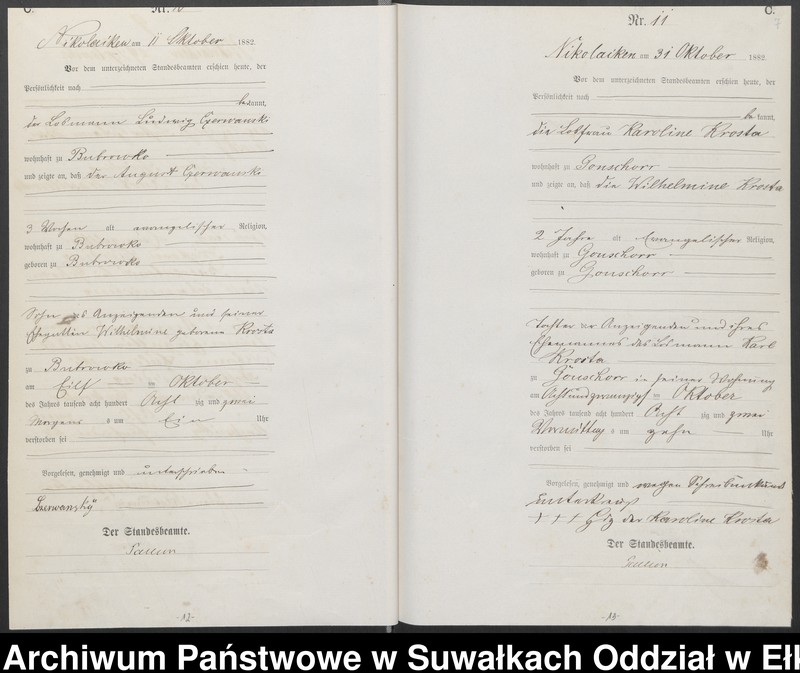 C.
Nr. 10
Nikolaiken am 11 Oktober 1882.
Vor dem unterzeichneten Standesbeamten erschien heute, der
Persönlichkeit nach
bekannt,
der Losmann Ludwig Czerwanski
wohnhaft zu Bubrowko
und zeigte an, daß der August Czerwanski
3 Wochen alt evangelischer Religion,
wohnhaft zu Bubrowko
geboren zu Bubrowko
Sohn des Anzeigenden und seiner
Ehegattin Wilhelmine geborene Krosta
zu Bubrowko
am Eilf ten Oktober
des Jahres tausend acht hundert Acht zig und zwei
Morgens s um Ein Uhr
verstorben sei
Vorgelesen, genehmigt und unterschrieben
Czerwansky
Der Standesbeamte.
-12-
C.
7
Nr. 11
Nikolaiken am 31 Oktober 1882.
Vor dem unterzeichneten Standesbeamten erschien heute, der
Persönlichkeit nach
bekannt,
die Losfrau Karoline Krosta
wohnhaft zu Gonschorr
und zeigte an, daß die Wilhelmine Krosta
2 Jahre alt Evangelischer Religion,
wohnhaft zu Gonschorr
geboren zu Gonschorr
Tochter der Anzeigenden und ihres
Ehemannes des Losmann Karl
Krosta
zu Gonschorr in seiner Wohnung
am Achtundzwanzigst ten Oktober
des Jahres tausend acht hundert Acht zig und zwei
Vormittag s um zehn Uhr
verstorben sei
Vorgelesen, genehmigt und wegen Schreibunkunde
unterkreuzt
+++ Hdz der Karoline Krosta
Der Standesbeamte.
-13-
Archiwum Państwowe w Suwałkach Oddział w Ełk